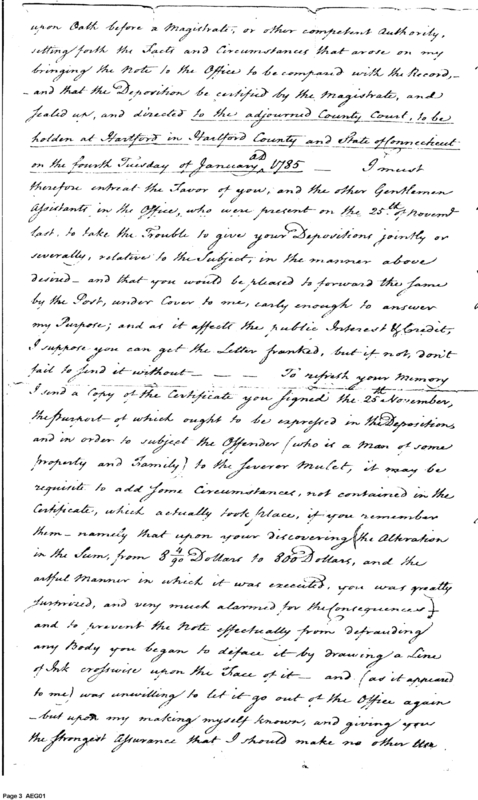 upon Oath before a Magistrate, or other competent Authority,
setting forth the Facts and Circumstances that arose on my
bringing the Note to the Office to be compared with the Record,–
– and that the Deposition be certified by the Magistrate, and
sealed up, and directed to the adjourned County Court, to be
holden at Hartford in Hartford County and State of Connecticut
on the fourth Tuesday of January AD 1785 — I must
therefore entreat the Favor of you, and the other Gentlemen
Assistants in the Office, who were present on the 25th of Novemr
last. to take the Trouble to give your Depositions jointly or
severally, relative to the Subject, in the manner above
desired – and that you would be pleased to forward the same
by the Post, under Cover to me, early enough to answer
my Purpose; and as it affects the public Interest & Credit,
I suppose you can get the Letter franked, but if not, don't
fail to send it without — — — To refresh your Memory
I send a Copy of the Certificate you signed the 25th November,
the purport of which ought to be expressed in the Deposition,
and in order to subject the Offender (who is a Man of some
property and Family) to the severer Mulct, it may be
requisite to add some Circumstances, not contained in the
Certificate, which actually took place, if you remember
them – namely that upon your discovering (the Alteration
in the Sum, from 8 4/90 Dollars to 800 Dollars, and the
artful Manner in which it was executed, you was greatly
surprized, and very much alarmed for the Consequences)
and to prevent the Note effectually from defrauding
any Body you began to deface it by drawing a Line
of Ink crosswise upon the Face of it – and (as it appeared
to me) was unwilling to let it go out of the Office again
– but upon my making myself known, and giving you
the strongest Assurance that I should make no other Use
Page 3 AEG01